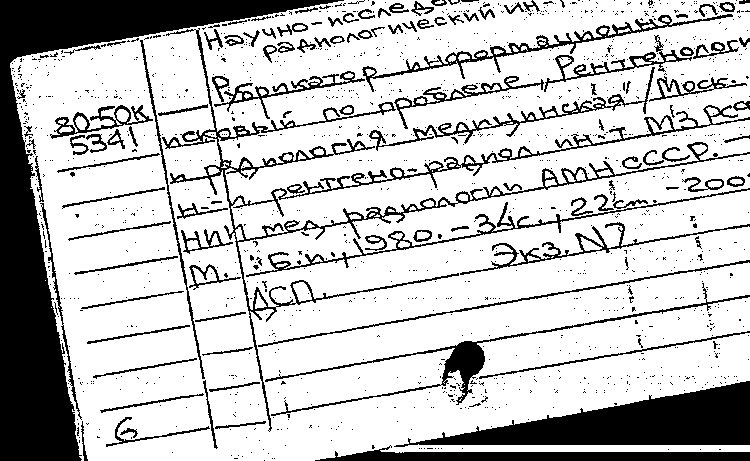 Научно-исследов
радиологический ин-т
Рубрикатор информационно-по-
80-50к
исковый по проблеме „Рентгенологи
5341
и радиология медицинская" / Моск.
н.-и. рентгено-радиол. ин-т МЗ РСФ
НИИ мед. радиологии АМН СССР. —
М. : Б.и., 1980. - 34с. ; 22см. - 200
ДСП. Экз. N7.
6